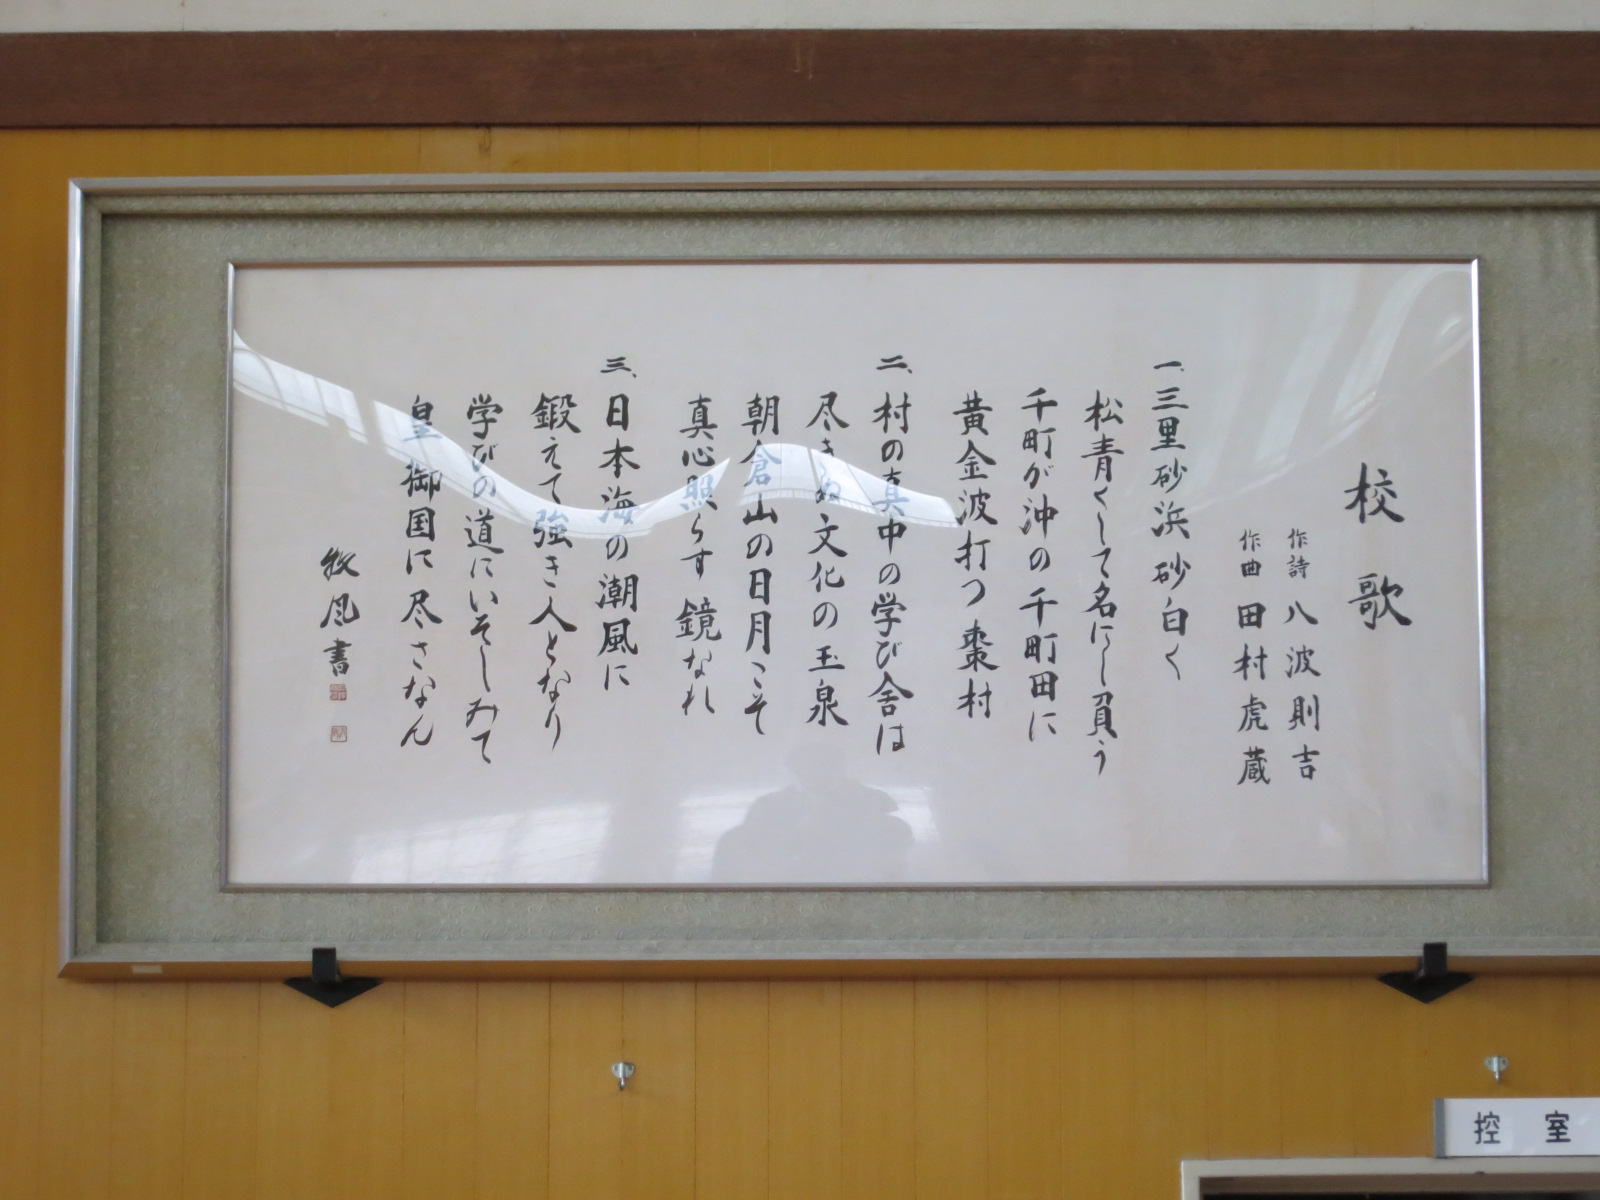 校歌
作詩 八波則吉
作曲 田村虎蔵
一、三里砂浜砂白く
松青くして名にし負う
千町が沖の千町田に
黄金波打つ棗村
二、村の真中の学び舎は
尽きぬ文化の玉泉
朝倉山の日月こそ
真心照らす鏡なれ
三、日本海の潮風に
鍛えて強き人となり
学びの道にいそしみて
皇御国に尽さなん
牧風書
控室